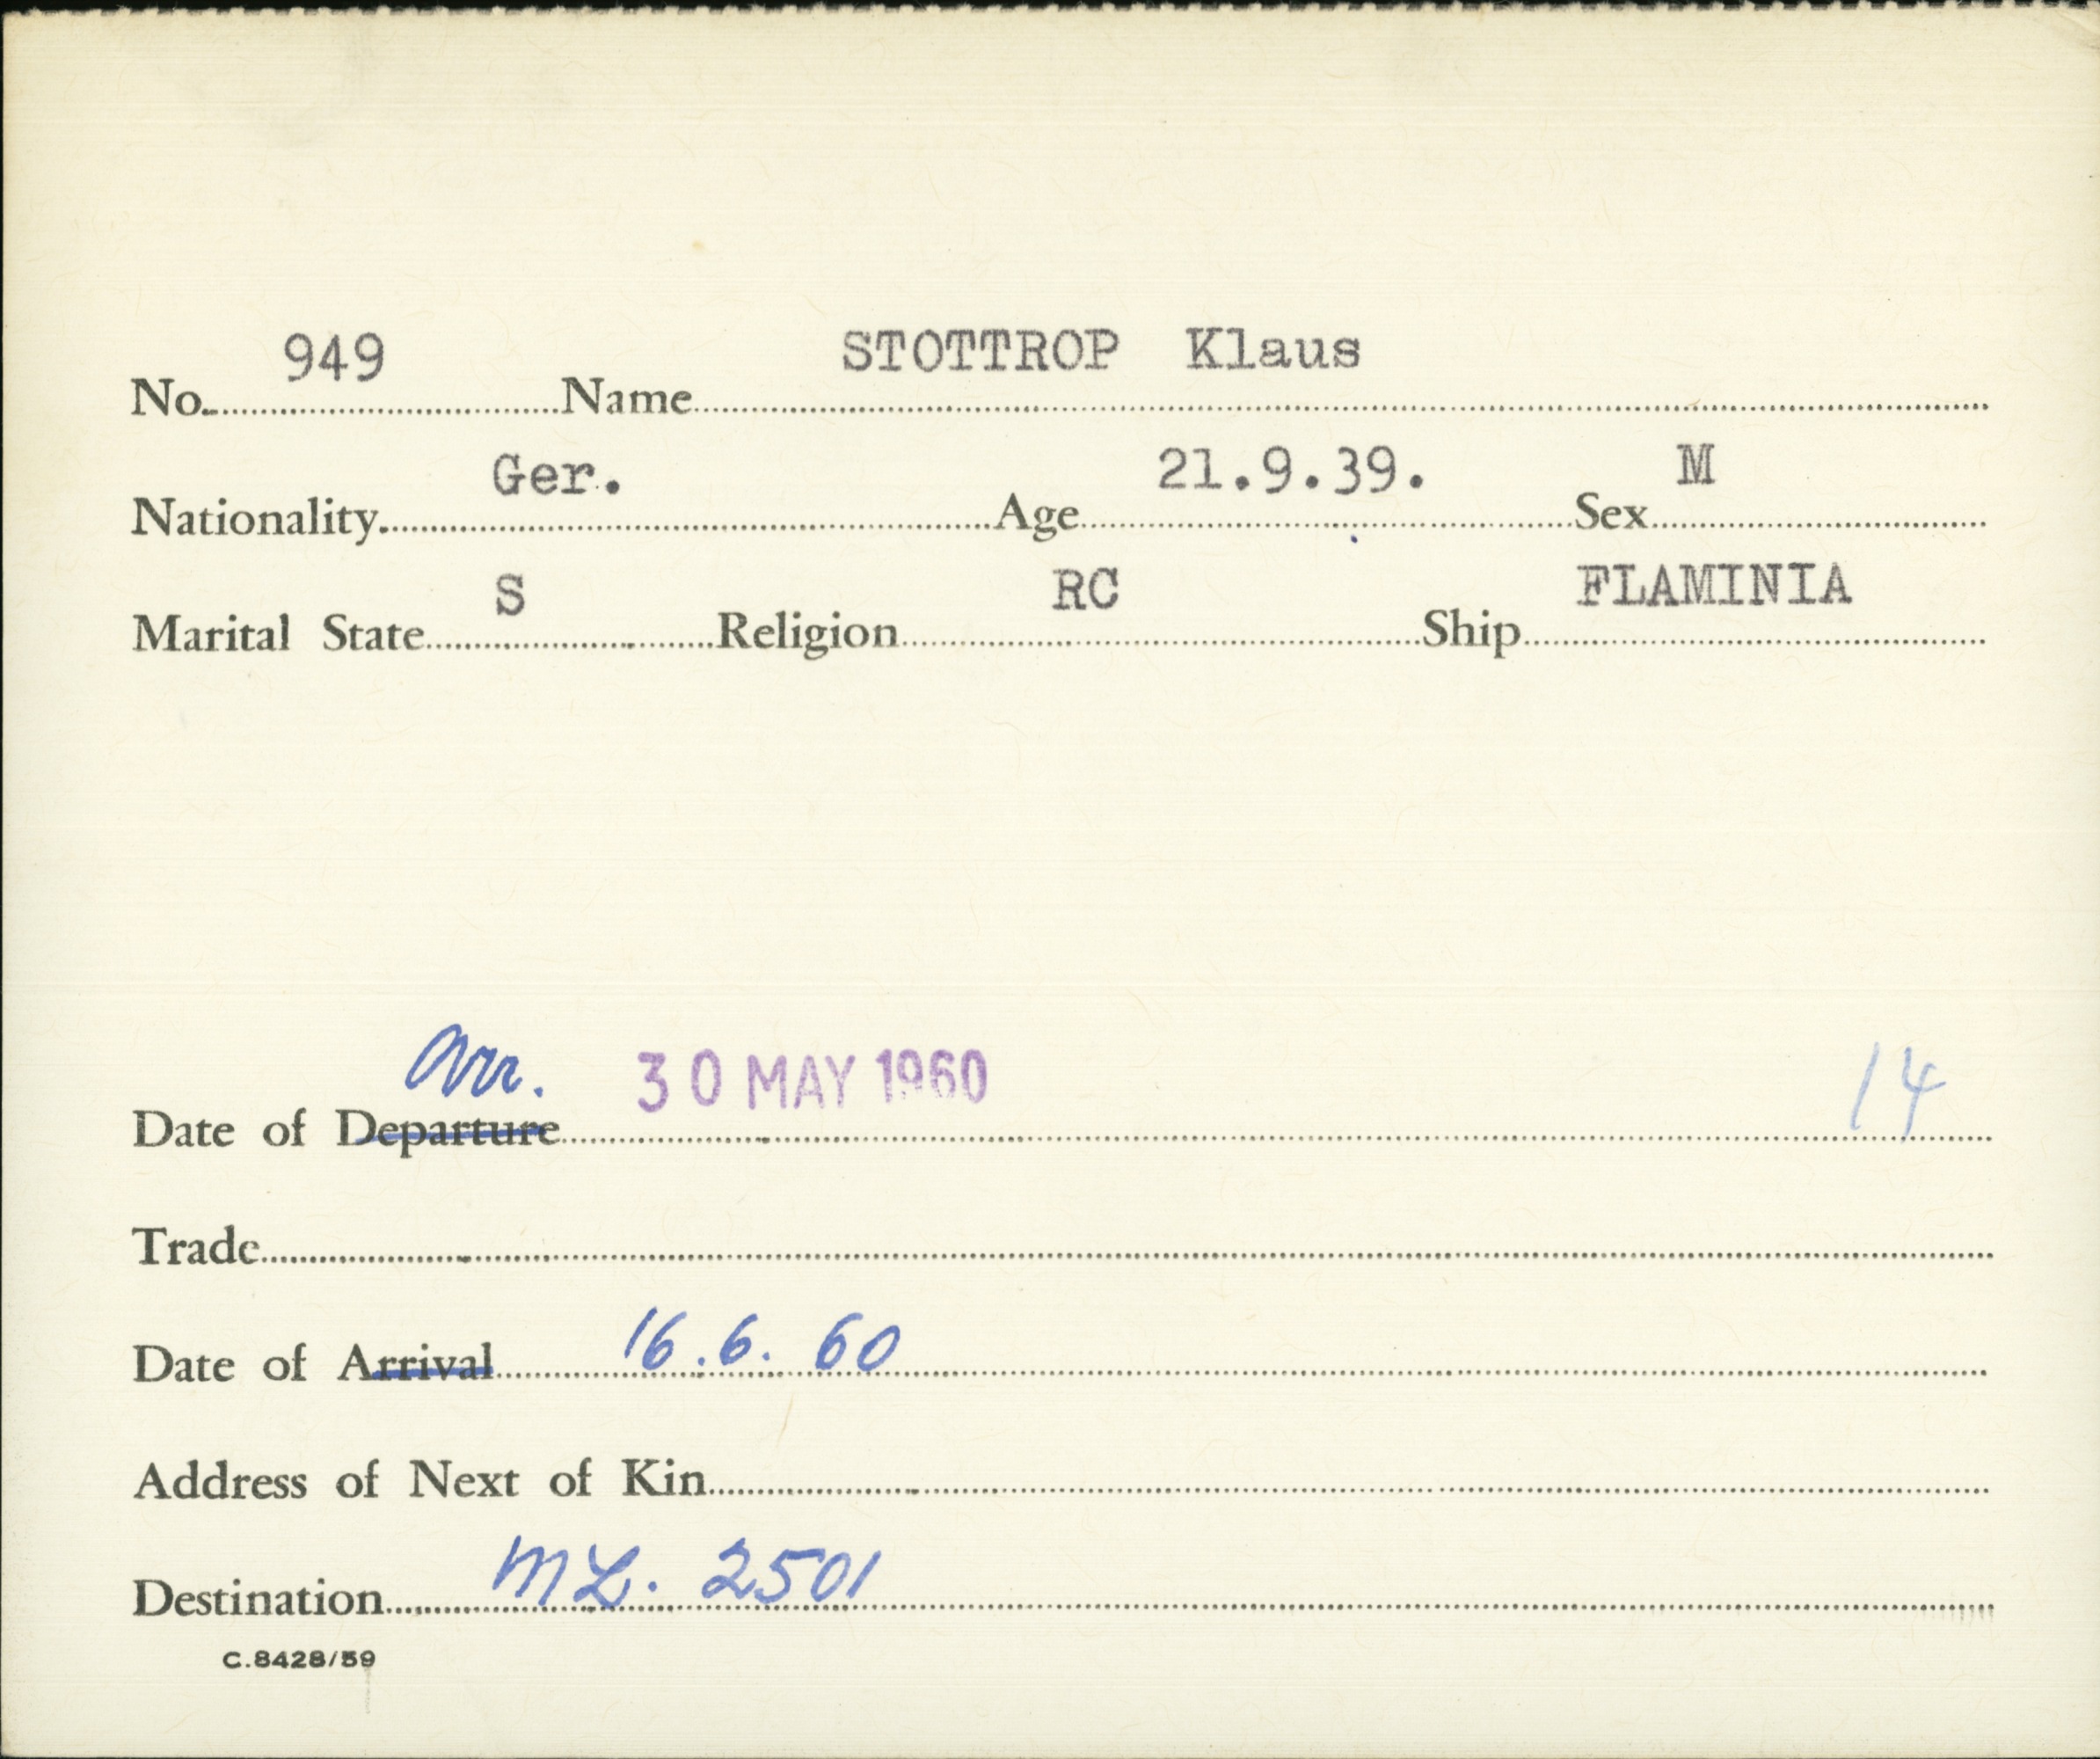 No. 949 Name STOTTROP Klaus
Nationality Ger. Age 21.9.39. Sex M
Marital State S Religion RC Ship FLAMINIA
Arr. 30 MAY 1960 14
Date of Departure
Trade
Date of Arrival 16.6.60
Address of Next of Kin
Destination ML. 2501
C.8428/59